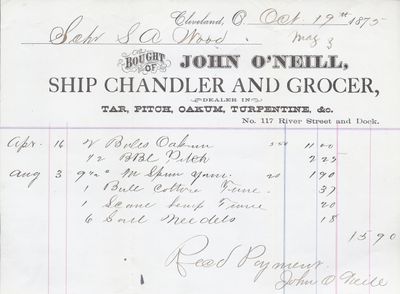 Cleveland, O. Oct. 19th 1875
Schr S A Wood.
BOUGHT OF JOHN O'NEILL,
SHIP CHANDLER AND GROCER,
DEALER IN
TAR, PITCH, OAKUM, TURPENTINE, &c.
No. 117 River Street and Dock.
Apr. 16 2 Bales Oakum 5 50 11 00
1/2 BBl Pitch 2 25
Aug 3 M Spun Yarn. 20 1 90
1 Ball Cotton Twine. 37
1 hemp Twine 20
6 Sail Needels 18
15 90
Recd Payment
John O Neill